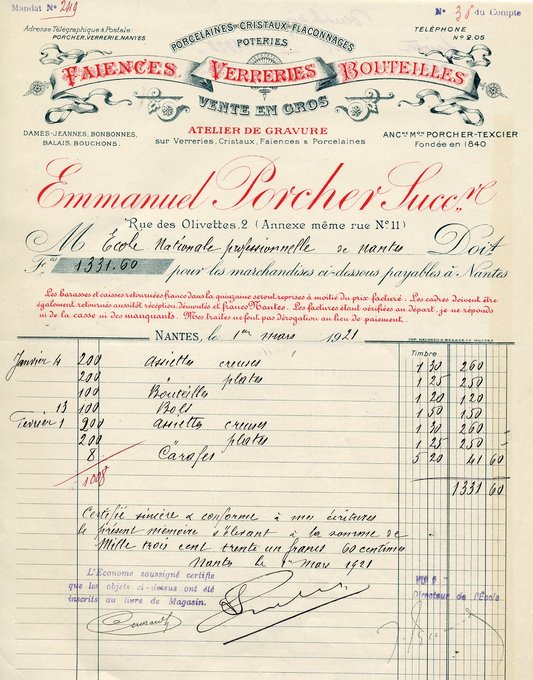 Mandat N° 249
N° 36 du Compte
Adresse Télégraphique & Postale:
PORCHER, VERRERIE, NANTES
PORCELAINES-CRISTAUX-FLACONNAGES
POTERIES
TÉLÉPHONE
N° 2.05
FAIENCES VERRERIES BOUTEILLES
VENTE EN GROS
DAMES-JEANNES, BONBONNES,
BALAIS, BOUCHONS.
ATELIER DE GRAVURE
sur Verreries, Cristaux, Faïences & Porcelaines
ANCNE MON PORCHER-TEXCIER
Fondée en 1840
Emmanuel Porcher Succre
Rue des Olivettes, 2 (Annexe même rue N° 11)
M École Nationale professionnelle de Nantes Doit
Fcs 1331.60 pour les marchandises ci-dessous payables à Nantes
Les harasses et caisses retournées franco dans la quinzaine seront reprises à moitié du prix facturé. Les cadres doivent être
également retournés aussitôt réception démontés et franco Nantes. Les factures étant vérifiées au départ, je ne réponds
ni de la casse ni des manquants. Mes traites ne font pas dérogation au lieu de paiement.
NANTES, le 1er mars 1921
Timbre
Janvier 4 200 assiettes creuses 1 30 260
200 " plates 1 25 250
100 Bouteilles 1 20 120
13 100 Bols 1 50 150
Février 1 200 assiettes creuses 1 30 260
200 plates 1 25 250
8 Carafes 5 20 41 60
1008
1331 60
Certifié sincère & conforme à mes écritures
le présent mémoire s'élevant à la somme de
Mille trois cent trente un francs 60 centimes
Nantes le 1er mars 1921
L'Econome soussigné certifie
que les objets ci-dessus ont été
inscrits au livre de Magasin.
Directeur de l'École